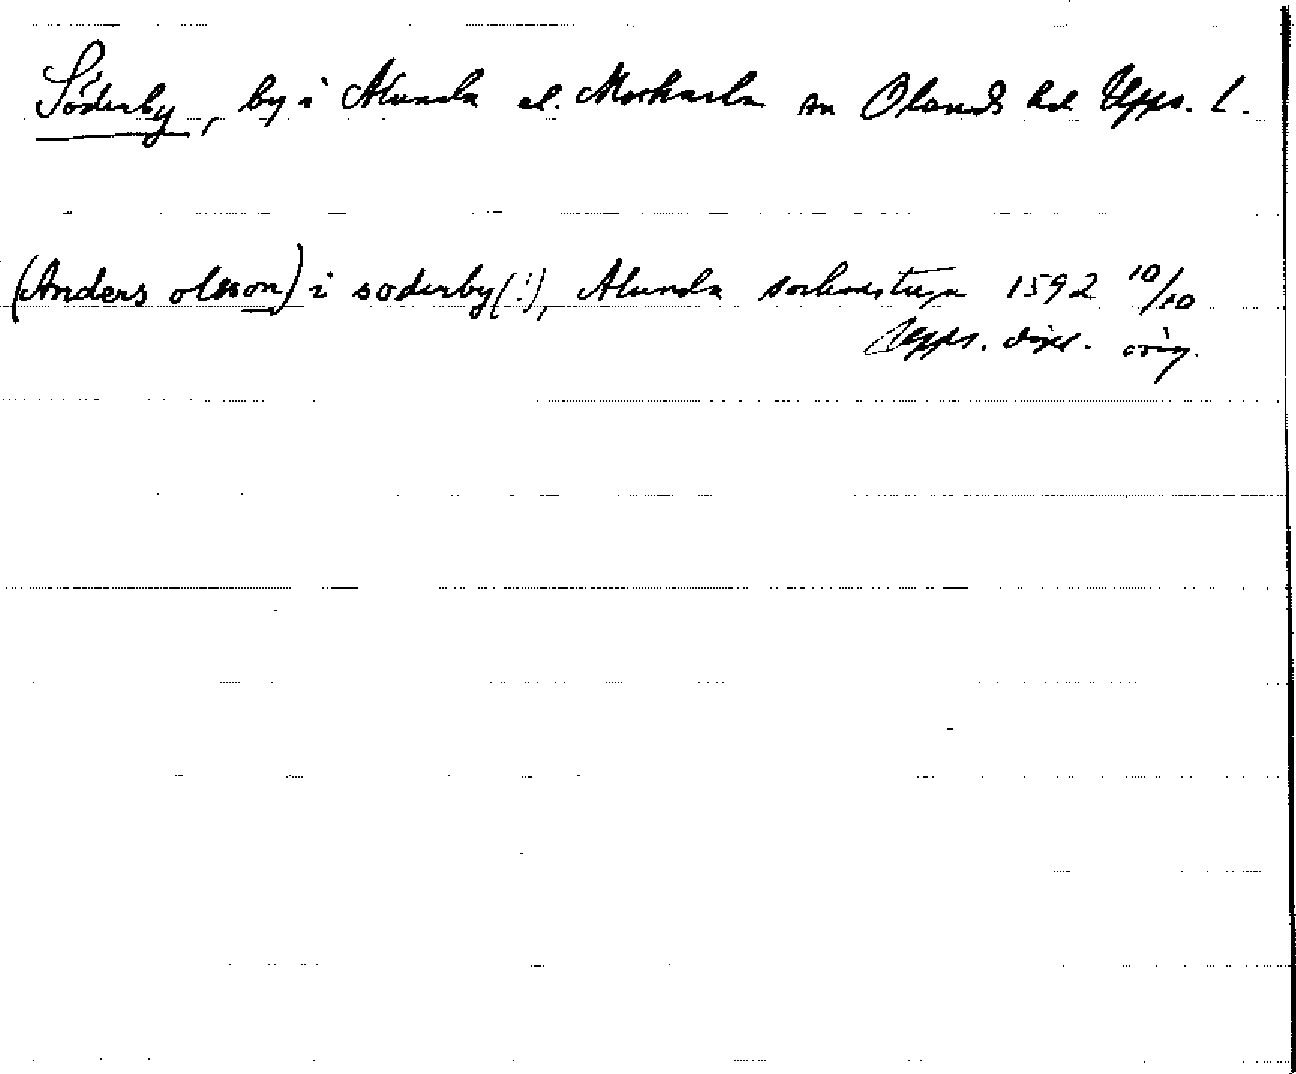 Söderby, by i Alunda el. Morkarla sn Olands hd Upps. l.
(Anders olsson) i soderby(!), Alunda sockenstuga 1592 10/10
Upps. dipl. orig.